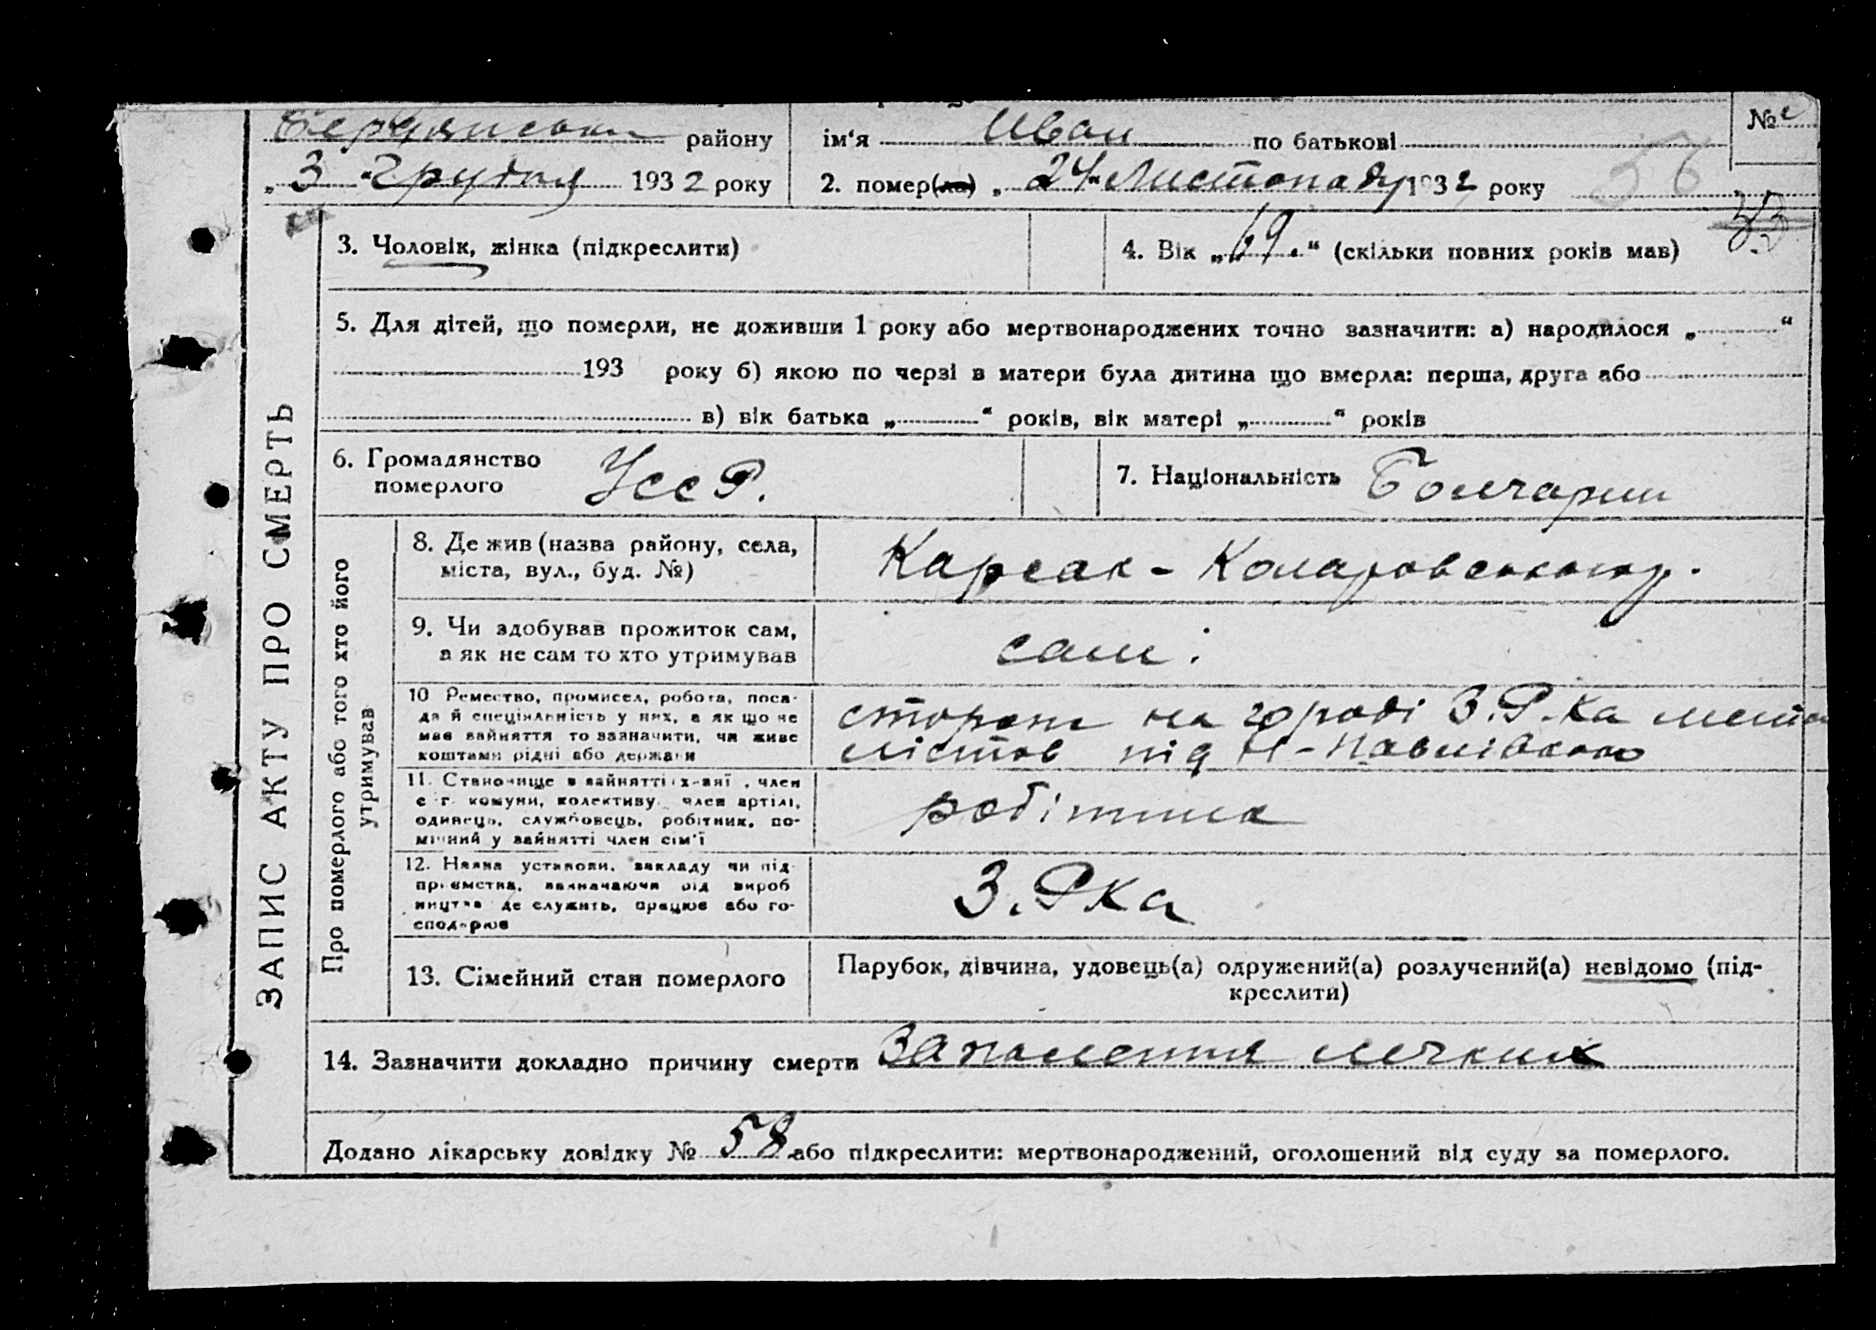 Бердянськ району ім'я Иван по батькові № 2
„ 3 " Грудня 1932 року 2. помер(ла) „ 24 " Листопаду 1932 року 56
33
3. Чоловік, жінка (підкреслити) 4. Вік „ 69 " (скільки повних років мав)
5. Для дітей, що померли, не доживши 1 року або мертвонароджених точно зазначити: а) народилося „ "
193 року б) якою по черзі в матери була дитина що вмерла: перша, друга або
в) вік батька „ " років, вік матері „ " років
6. Громадянство
померлого
УССР.
7. Національність Болгарин
ЗАПИС АКТУ ПРО СМЕРТЬ
Про померлого або того хто його
утримував
8. Де жив (назва району, села,
міста, вул., буд. №)
Карсак - Коларовського р.
9. Чи здобував прожиток сам,
а як не сам то хто утримував
сам.
10 Ремество, промисел, робота, поса-
да й спеціяльність у них, а як що не
має зайняття то зазначити, чи живе
коштами рідні або держави
сторож на городі З.Р.Ка мета
лістов під Н-Павлівкою
11. Становище в зайнятті: член
с-г. комуни, колективу, член артілі,
одинець, службовець, робітник, по-
мічний у зайнятті член сім'ї
робітник
12. Назва установи, закладу чи під-
приємства, зазначаючи рід вироб
ництва де служить, працює або го-
сподарює
З.Рка
13. Сімейний стан померлого
Парубок, дівчина, удовець(а) одружений(а) розлучений(а) невідомо (під-
креслити)
14. Зазначити докладно причину смерти Запалення легких
Додано лікарську довідку № 58 або підкреслити: мертвонароджений, оголошений від суду за померлого.